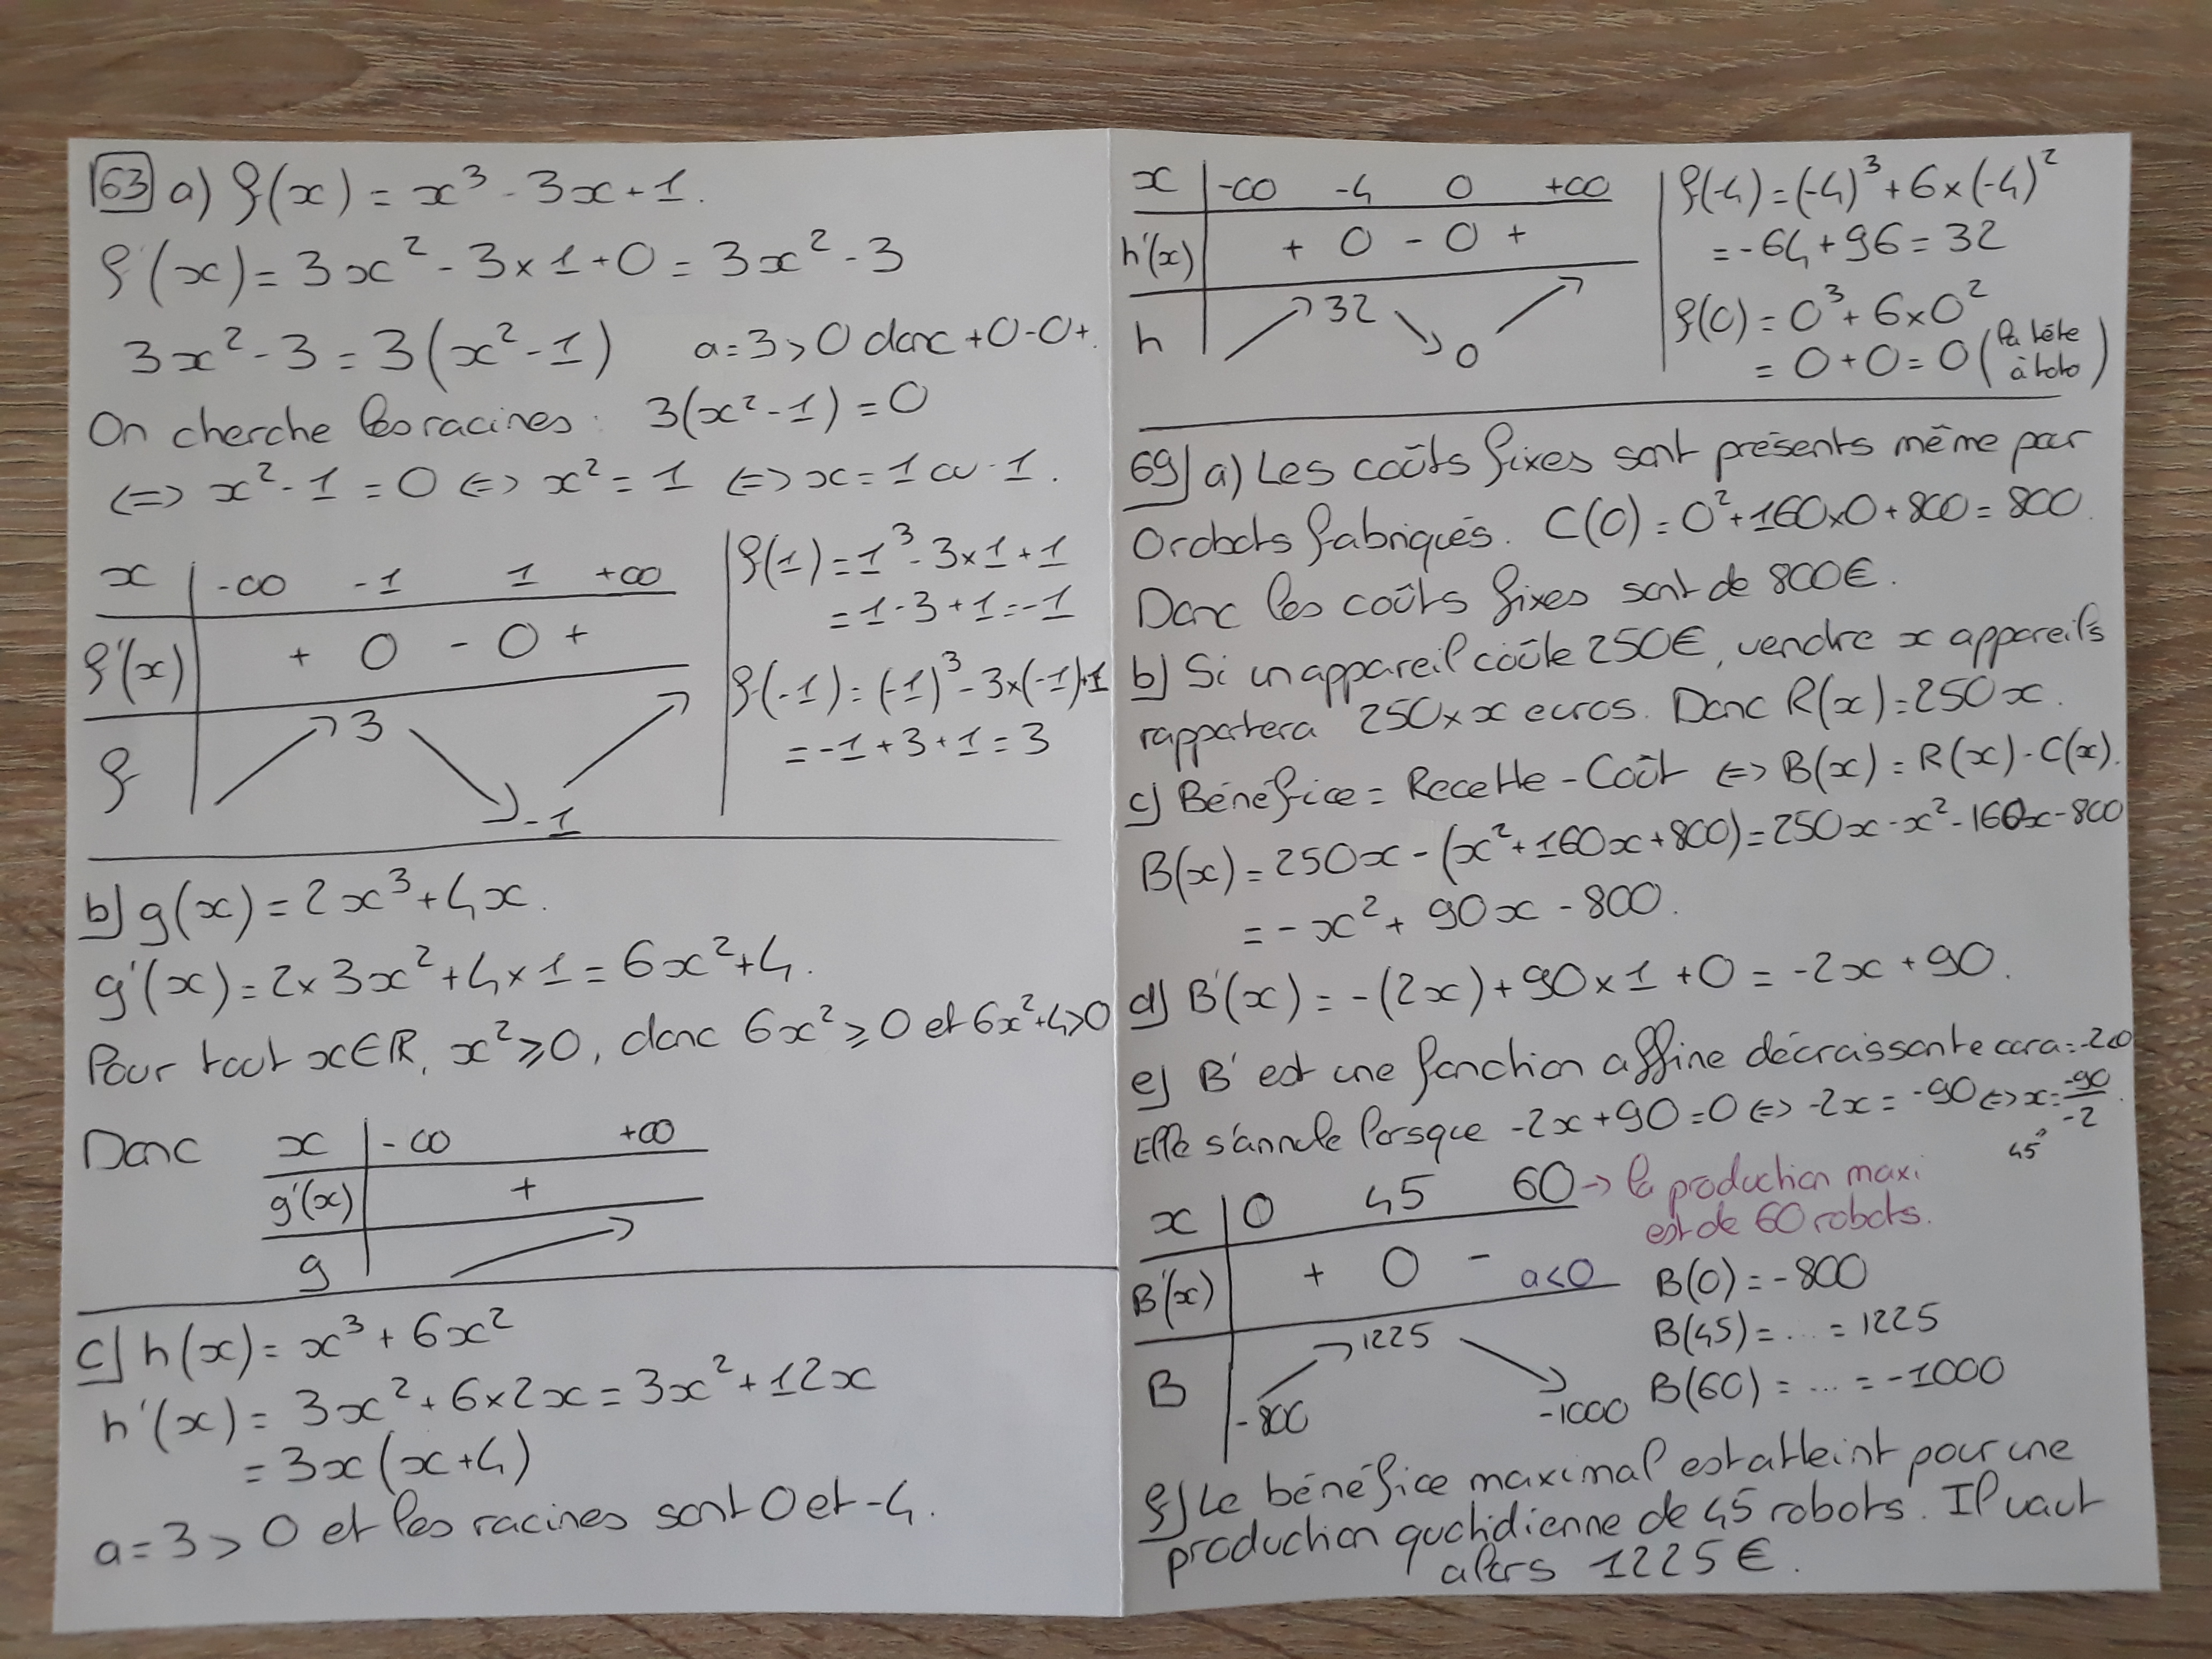 63 a) f(x) = x³ - 3x + 1.
f'(x) = 3x² - 3×1 + 0 = 3x² - 3
3x² - 3 = 3(x² - 1)   a = 3 > 0 donc + 0 - 0 +.
On cherche les racines : 3(x² - 1) = 0
⇔ x² - 1 = 0 ⇔ x² = 1 ⇔ x = 1 ou -1.
x | -∞ -1 1 +∞
f'(x) | + 0 - 0 +
f | ↗ 3 ↘ -1 ↗
f(1) = 1³ - 3×1 + 1
= 1 - 3 + 1 = -1
f(-1) = (-1)³ - 3×(-1) + 1
= -1 + 3 + 1 = 3
b) g(x) = 2x³ + 4x.
g'(x) = 2×3x² + 4×1 = 6x² + 4.
Pour tout x∈ℝ, x² ⩾ 0, donc 6x² ⩾ 0 et 6x² + 4 > 0
Donc x | -∞ +∞
g'(x) | +
g | ↗
c) h(x) = x³ + 6x²
h'(x) = 3x² + 6×2x = 3x² + 12x
= 3x(x + 4)
a = 3 > 0 et les racines sont 0 et -4.
x | -∞ -4 0 +∞
h'(x) | + 0 - 0 +
h | ↗ 32 ↘ 0 ↗
f(-4) = (-4)³ + 6×(-4)²
= -64 + 96 = 32
f(0) = 0³ + 6×0²
= 0 + 0 = 0 (la tête
à toto)
69) a) Les coûts fixes sont présents même pour
0 robots fabriqués. C(0) = 0² + 160×0 + 800 = 800.
Donc les coûts fixes sont de 800€.
b) Si un appareil coûte 250€, vendre x appareils
rapportera 250×x euros. Donc R(x) = 250x.
c) Bénéfice = Recette - Coût ⇔ B(x) = R(x) - C(x).
B(x) = 250x - (x² + 160x + 800) = 250x - x² - 160x - 800
= -x² + 90x - 800.
d) B'(x) = -(2x) + 90×1 + 0 = -2x + 90.
e) B' est une fonction affine décroissante car a = -2<0
Elle s'annule lorsque -2x + 90 = 0 ⇔ -2x = -90 ⇔ x = -90/-2.
45
x | 0 45 60 → la production maxi
est de 60 robots.
B'(x) | + 0 - a<0
B | -800 ↗ 1225 ↘ -1000
B(0) = -800
B(45) = ... = 1225
B(60) = ... = -1000
f) Le bénéfice maximal est atteint pour une
production quotidienne de 45 robots. Il vaut
alors 1225€.